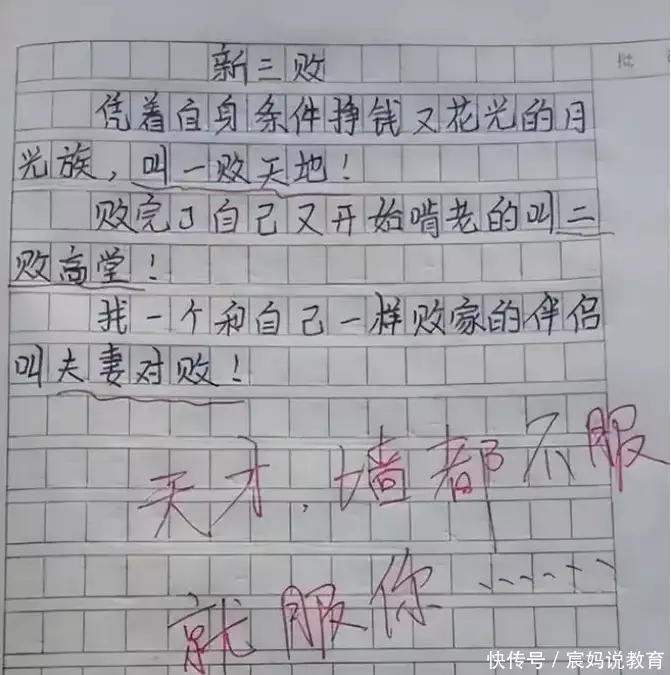 新三败
凭着自身条件挣钱又花光的月
光族，叫一败天地！
败完了自己又开始啃老的叫二
败高堂！
找一个和自己一样败家的伴侣
叫夫妻对败！
天才，墙都不服
就服你……
快传号／宸妈说教育